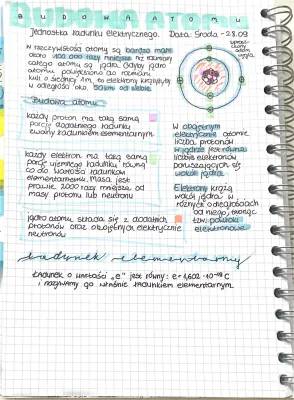 BUDOWA ATOMU
Jednostka ładunku elektrycznego. Data: Środa - 28.09
W rzeczywistości atomy są bardzo małe
około 100 000 razy mniejsze niż rozmiary
całego atomu są jądra. Gdyby jądro
atomu powiększono do rozmiaru
kuli o średnicy 1m, to elektrony krążyłyby
w odległości około 50km od siebie.
uproszczony
model
węgla
Budowa atomu
każdy proton ma taką samą
porcję dodatniego ładunku
zwaną ładunkiem elementarnym
każdy elektron ma taką samą
porcję ujemnego ładunku, równą
co do wartości ładunkowi
elementarnemu. Masa jest
prawie 2000 razy mniejsza od
masy protonu lub neutronu
jądro atomu składa się z dodatnich
protonów oraz obojętnych elektrycznie
neutronów
W obojętnym
elektrycznie atomie
liczba protonów
w jądrze jest równa
liczbie elektronów
poruszających się
wokół jądra
Elektrony krążą
wokół jądra w
różnych odległościach
od niego, tworząc
tzw. powłoki
elektronowe.
ładunek elementarny
Ładunek o wartości „e" jest równy: e=1,602·10⁻¹⁹C
i nazywamy go właśnie ładunkiem elementarnym.